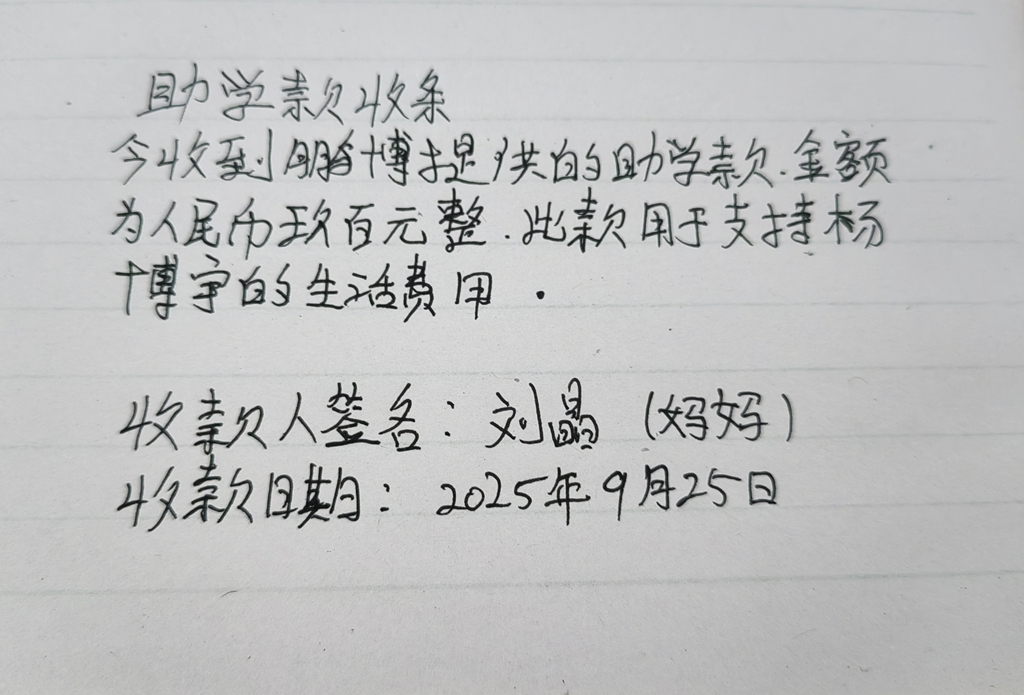 助学款收条
今收到鹏博提供的助学款.金额
为人民币玖百元整.此款用于支持杨
博宇的生活费用.
收款人签名:刘晶(妈妈)
收款日期:2025年9月25日